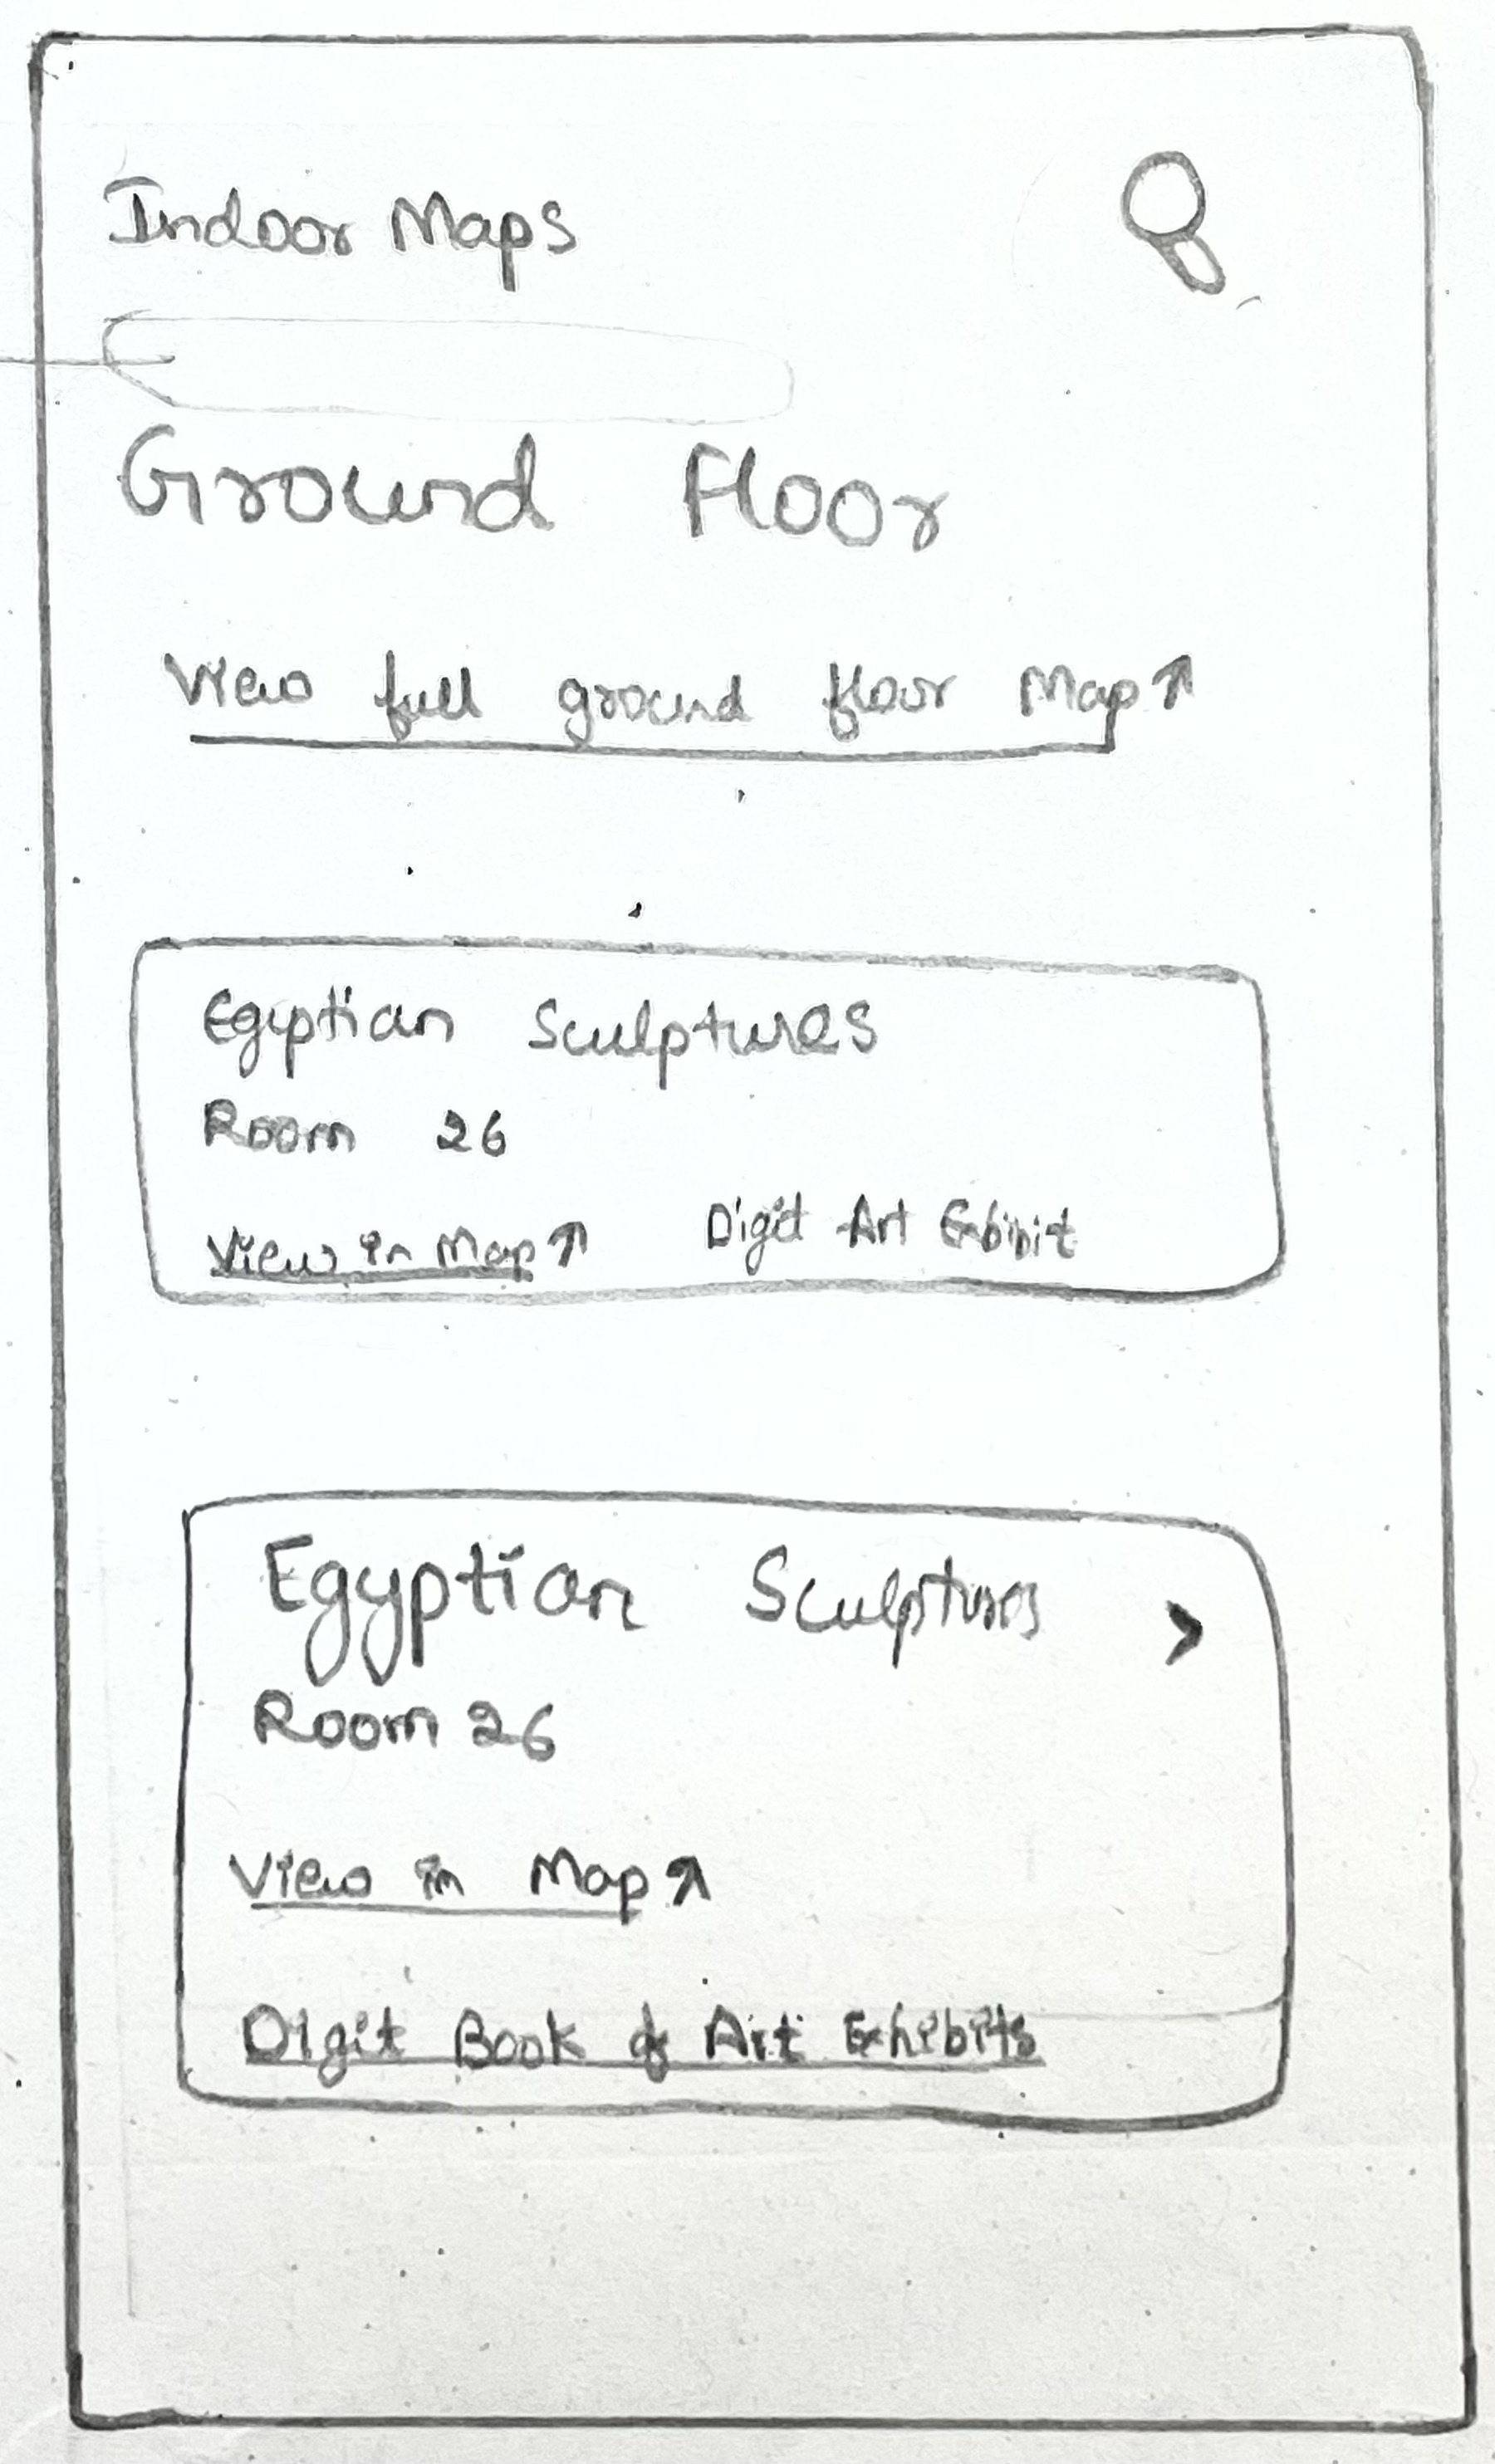 Indoor Maps
Ground Floor
View full ground floor Map
Egyptian Sculptures
Room 26
View in Map
Digit Art Exhibit
Egyptian Sculptures >
Room 26
View in Map
Digit Book of Art Exhibits